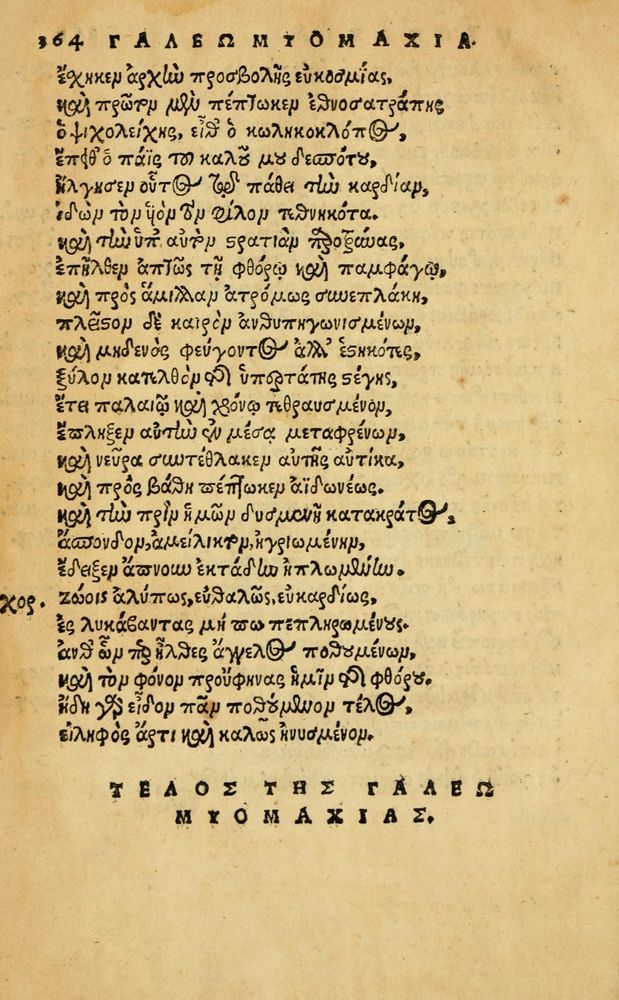 364 ΓΑΛΕΩΜΥΟΜΑΧΙΑ.
ἔσχηκεν ἀρχὴν προσβολῆς εὐκοσμίας,
καὶ πρῶτον μὲν πέπτωκεν ἐθνοσατράπης
ὁ ψιχολείχης, εἶθ' ὁ κωληκοκλόπος,
ἔπειθ' ὁ πάϊς τοῦ καλοῦ μου δεσπότου,
ἤλγησεν οὗτος τῷ πάθει τὴν καρδίαν,
ἰδὼν τὸν υἱὸν τὸν φίλον τεθνηκότα.
καὶ τὴν ὑπ' αὐτὸν στρατιὰν προξάνας,
ἐπῆλθεν ἀπτῶς τῇ φθόρῳ καὶ παμφάγῳ,
καὶ πρὸς ἅμιλλαν ἀτρόμως συνεπλάκη,
πλεῖστον δὲ καιρὸν ἀνθυπηγωνισμένων,
καὶ μηδενὸς φεύγοντος ἀλλ' ἑστηκότες,
ξύλον κατελθὸν ἐξ ὑπερτάτης στέγης,
ἔτει παλαιῷ καὶ χρόνῳ τεθραυσμένον,
ἔπληξεν αὐτὴν ἐν μέσᾳ μεταφρένων,
καὶ νεῦρα συντέθλακεν αὐτῆς αὐτίκα,
καὶ πρὸς βάθη πέπτωκεν ἀϊδωνέως.
καὶ τὴν πρὶν ἡμῶν δυσμενῆ κατακράτος,
ἄσπονδον, ἀμείλικτον, ἠγριωμένην,
ἔδειξεν ἄπνουν ἐκτάδην ἡπλωμένην.
χορ. ζώοις ἀλύπως, εὐθαλῶς, εὐκαρδίως,
ἐς λυκάβαντας μήπω πεπληρωμένους.
ἀνθ' ὧν προῆλθες ἄγγελος ποθουμένων,
καὶ τὸν φόνον προύφηνας ἡμῖν ἐκ φθόρου.
ἤδη γὰρ εἶδον πᾶν ποθούμενον τέλος,
εἰληφὸς ἄρτι καὶ καλῶς ἠνυσμένον.
ΤΕΛΟΣ ΤΗΣ ΓΑΛΕΩ
ΜΥΟΜΑΧΙΑΣ.